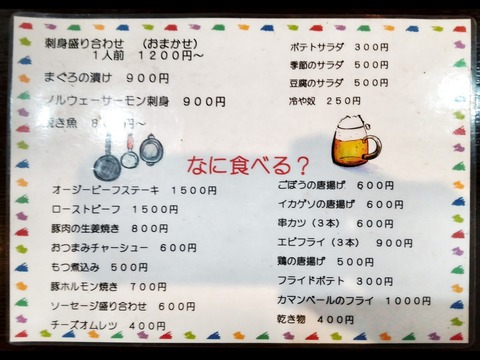 刺身盛り合わせ　（おまかせ）
１人前　１２００円～
まぐろの漬け　９００円
ノルウェーサーモン刺身　９００円
焼き魚　８００円～
ポテトサラダ　３００円
季節のサラダ　５００円
豆腐のサラダ　５００円
冷や奴　２５０円
なに食べる？
オージービーフステーキ　１５００円
ローストビーフ　１５００円
豚肉の生姜焼き　８００円
おつまみチャーシュー　６００円
もつ煮込み　５００円
豚ホルモン焼き　７００円
ソーセージ盛り合わせ　６００円
チーズオムレツ　４００円
ごぼうの唐揚げ　６００円
イカゲソの唐揚げ　６００円
串カツ（３本）　６００円
エビフライ（３本）　９００円
鶏の唐揚げ　５００円
フライドポテト　３００円
カマンベールのフライ　１０００円
乾き物　４００円